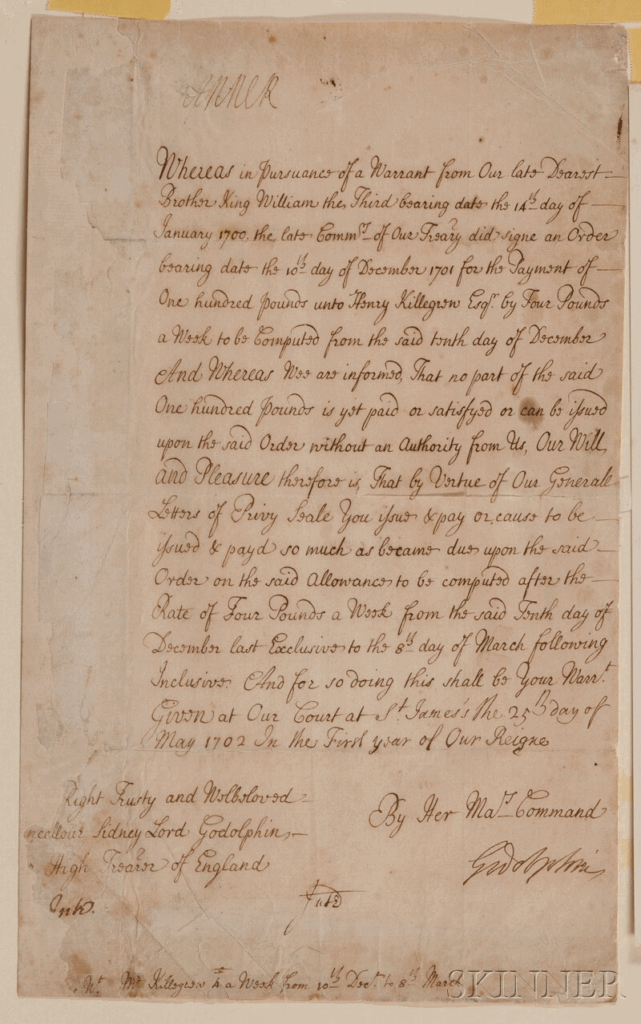 ANNE R
Whereas in Pursuance of a Warrant from Our late Dearest
Brother King William the Third bearing date the 14th day of
January 1700, the late Commrs of Our Treary did signe an Order
bearing date the 10th day of December 1701 for the Payment of
One hundred pounds unto Henry Killegrew Esqr by Four Pounds
a Week to be Computed from the said tenth day of December
And Whereas Wee are informed, That no part of the said
One hundred pounds is yet paid or satisfyed or can be issued
upon the said Order without an Authority from Us, Our Will
and Pleasure therefore is, That by Vertue of Our Generall
Letters of Privy Seale You issue & pay or cause to be
issued & payd so much as became due upon the said
Order on the said Allowance to be computed after the
Rate of Four Pounds a Week from the said Tenth day of
December last Exclusive to the 8th day of March following
Inclusive. And for so doing this shall be Your Warrt.
Given at Our Court at St. James's the 25th day of
May 1702 In the First year of Our Reigne
Right Trusty and Welbeloved
ncellour Sidney Lord Godolphin
High Trearer of England
By Her Mats Command
Godolphin
Wt. Mr Killegrew 4 a Week from 10th Decr. to 8th March
SKINNER